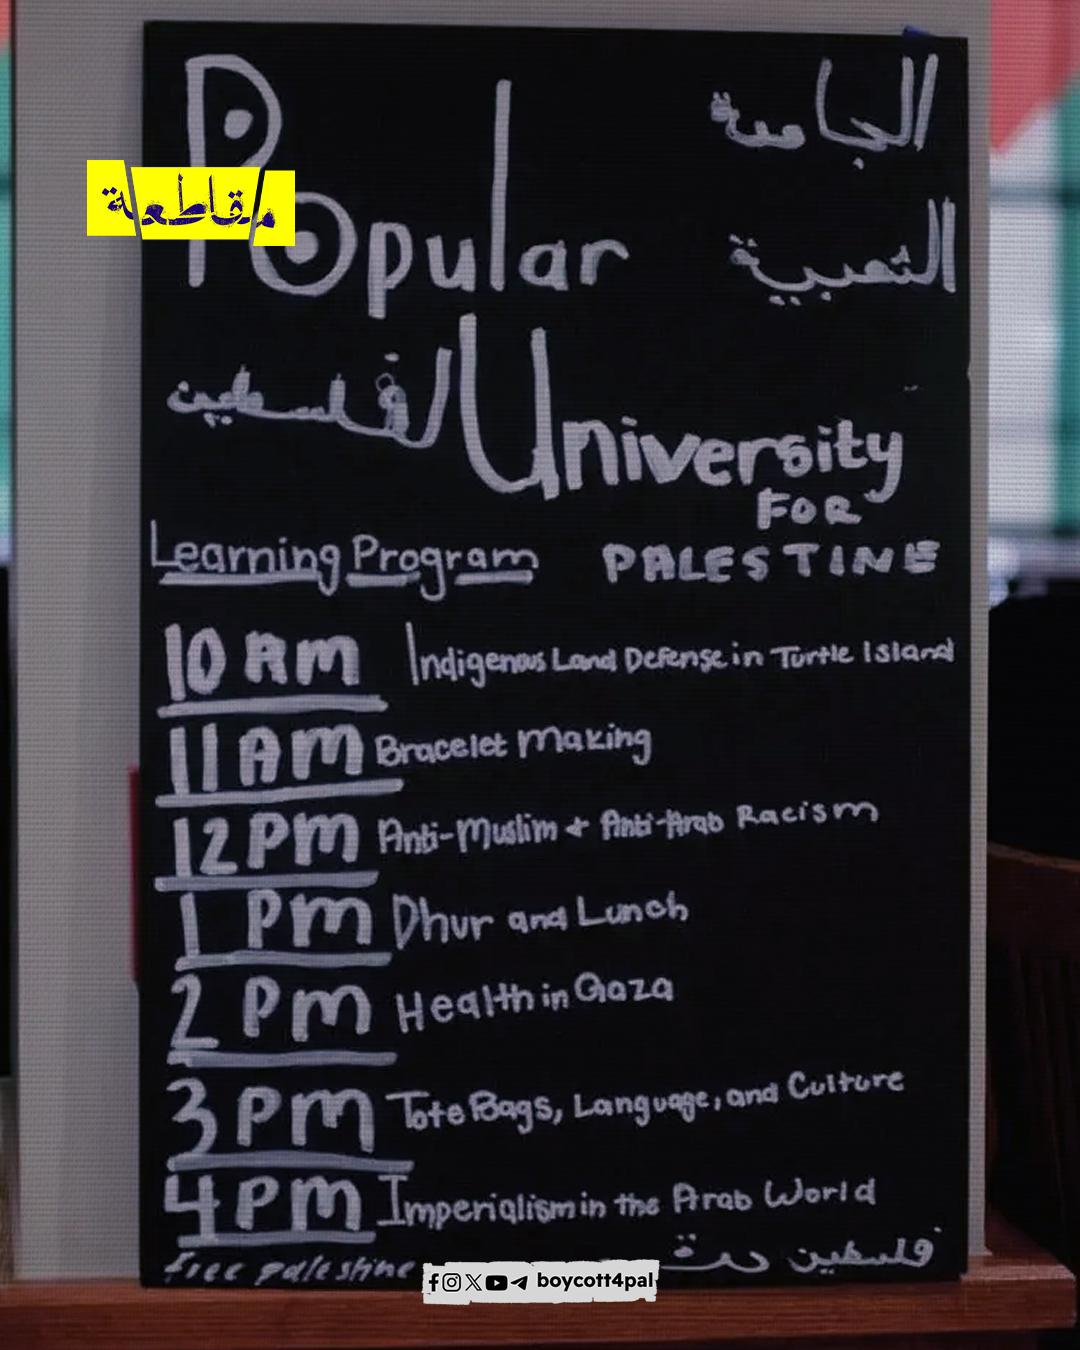 Popular
الجامعة
الشعبية
مقاطعة
University
الفلسطين
FOR
PALESTINE
Learning Program
10 AM Indigenous Land Defense in Turtle Island
11 AM Bracelet Making
12 PM Anti-Muslim + Anti-Arab Racism
1 PM Dhur and Lunch
2 PM Health in Gaza
3 PM Tote Bags, Language, and Culture
4 PM Imperialism in the Arab World
free palestine
فلسطين حرة
boycott4pal